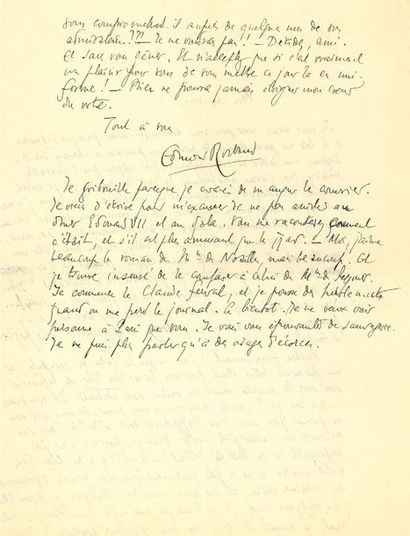 vous compromettent il auprès de quelqu'un de vos
admirateurs ??? – Je ne voudrais pas ! – Décidez, ami.
Et sans vous gêner. Et n'acceptez que si c'est vraiment
un plaisir pour vous de vous mettre ce jour là en uni-
forme ! – Rien ne pourra jamais éloigner mon cœur
du vôtre.
Tout à vous
Edmond Rostand
Je gribouille parceque je crains de manquer le courrier.
Je viens d'écrire pour m'excuser de ne pas assister au
dîner Edouard VII et au gala. Vous me raconterez comment
c'était, et s'il est plus amusant que le
– Moi, j'aime
beaucoup le roman de Mme de Noailles, mais beaucoup. Et
je trouve insensé de le comparer à celui de Mme de Régnier.
Je commence le Claude Ferval, et je pousse des hurlements
quand on me perd le journal. à bientôt. Je ne veux voir
personne à Paris que vous. Je vais vous épouvanter de sauvagerie.
Je ne puis plus parler qu'à des visages d'écorces.